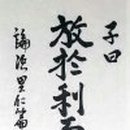 子曰
放於利而
論語里仁篇